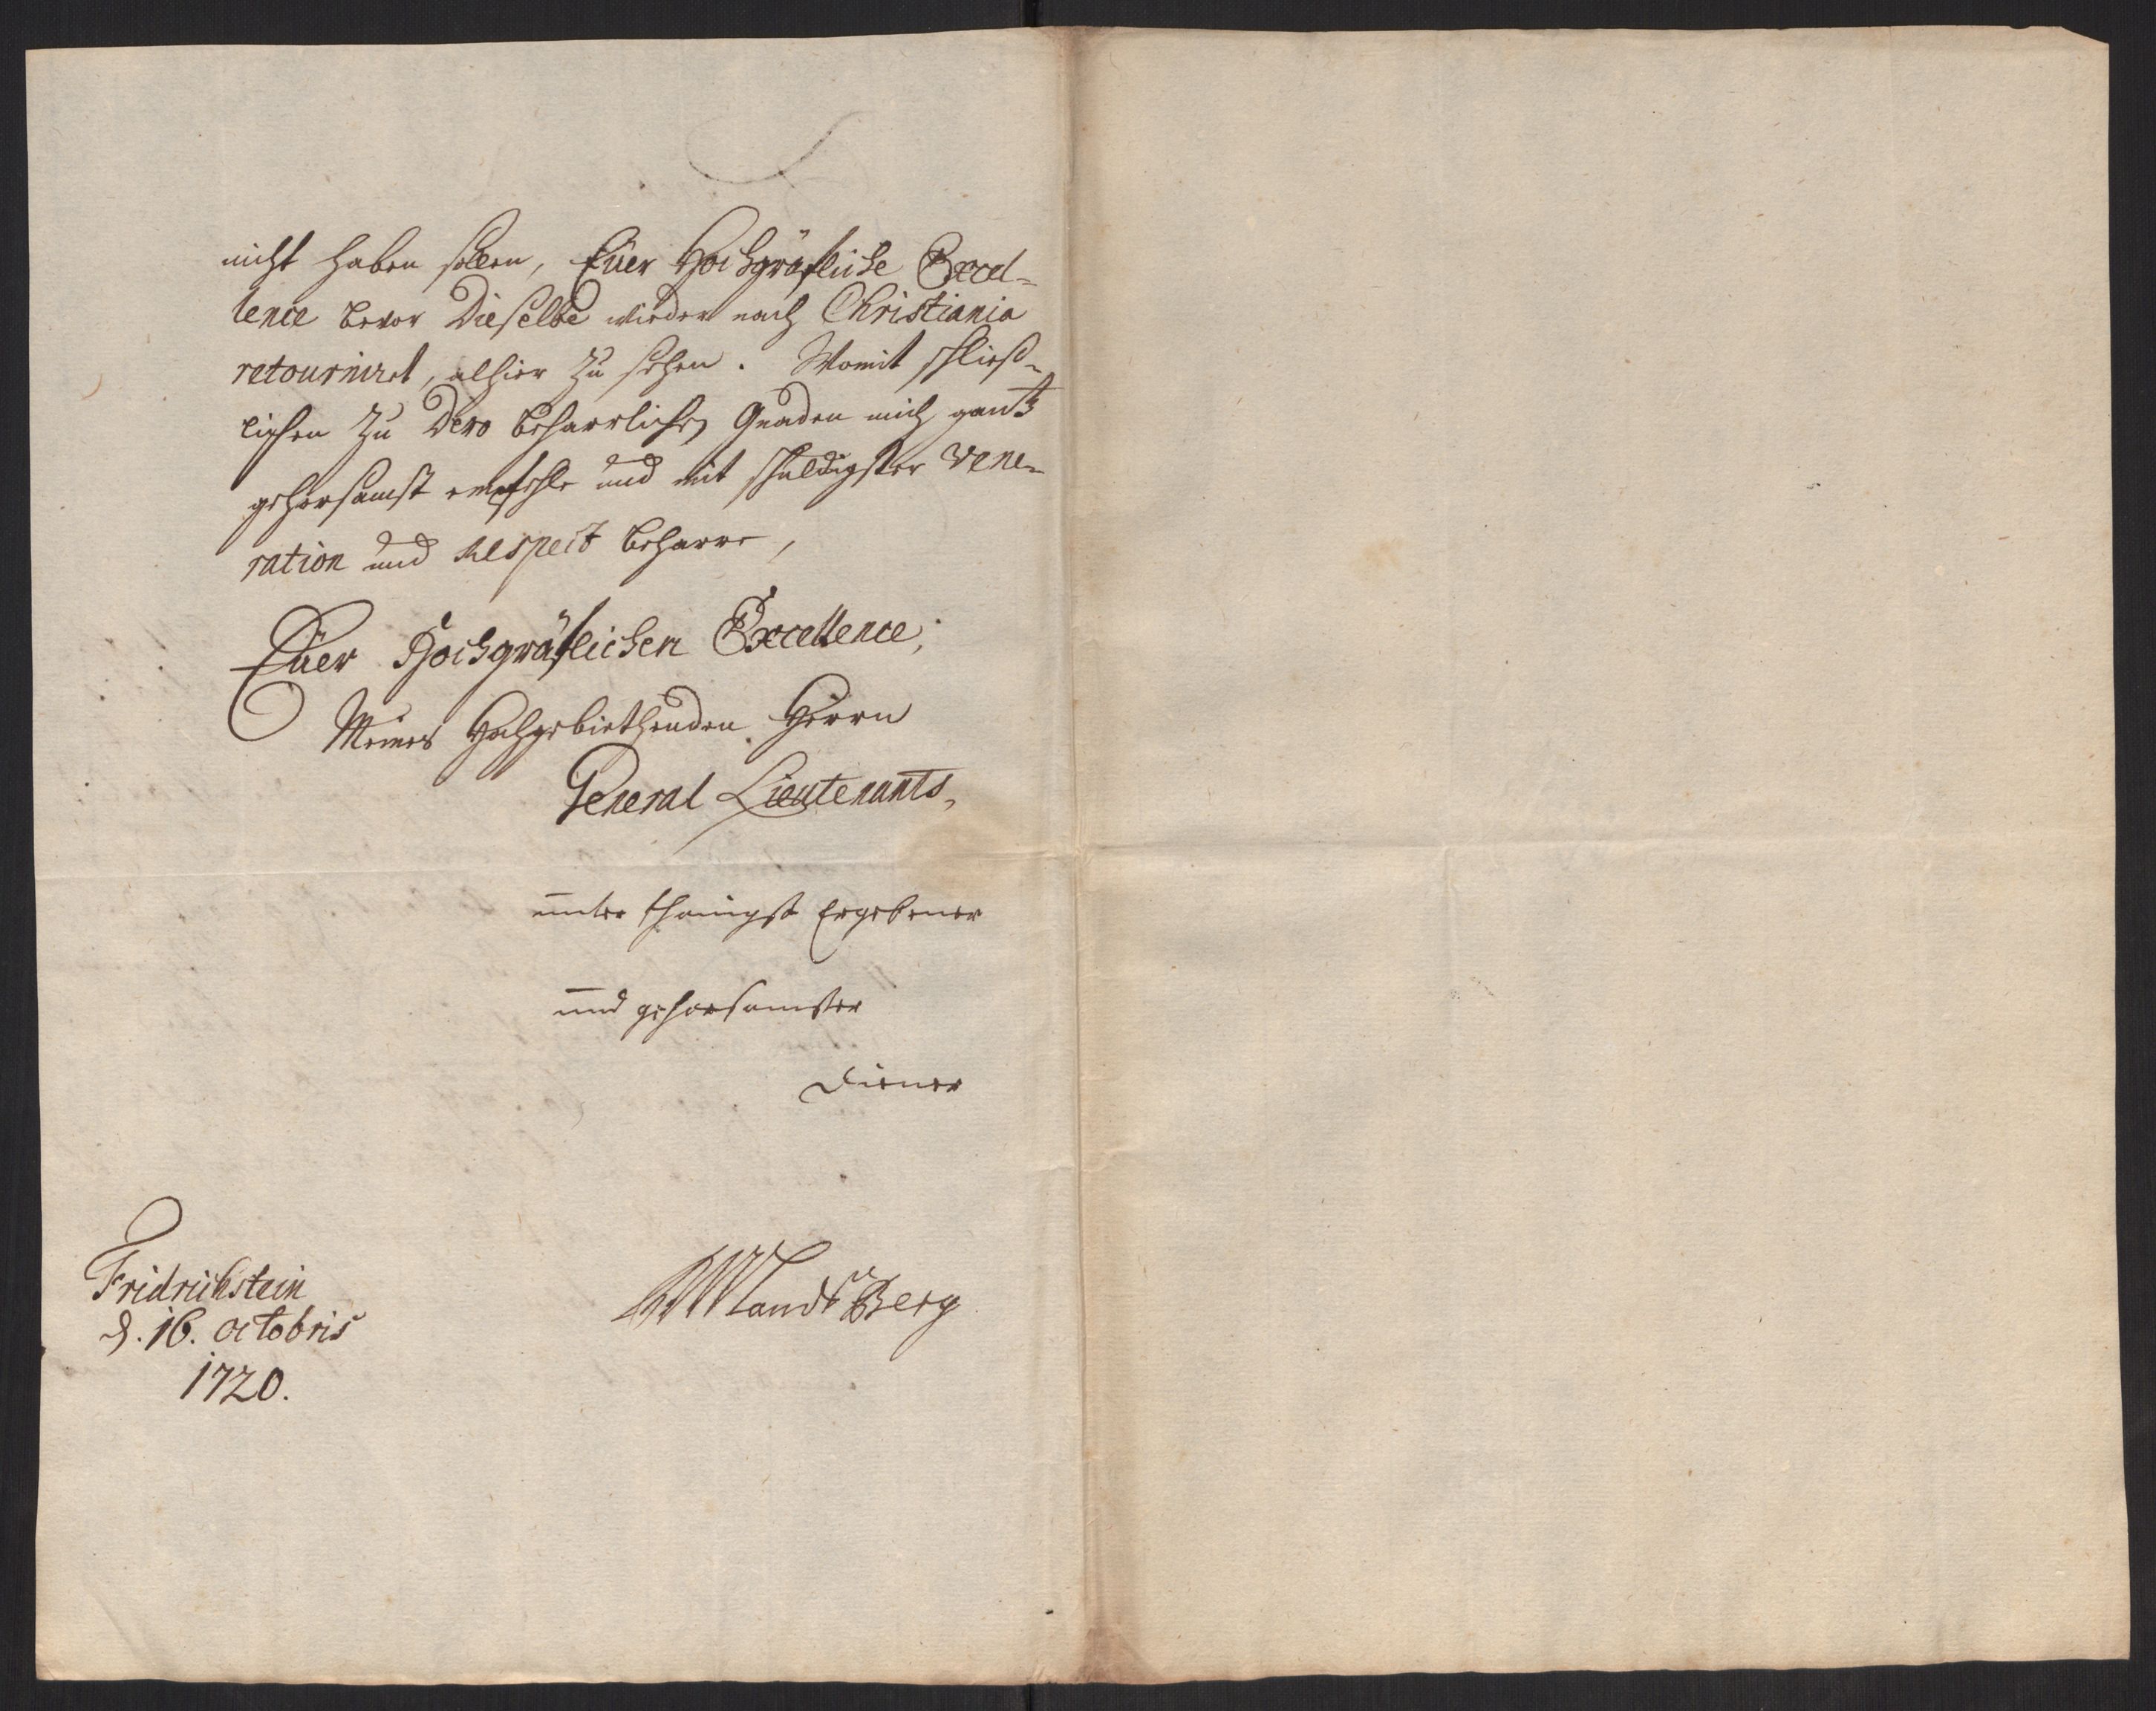 nicht haben sollen, Eüer Hochgräfliche Excel-
lence bevor Dieselbe wieder nach Christiania
retourniret, alhier zu sehen. Womit schließ-
lichen zu Dero beharrlichen Gnaden mich gantz
gehorsamst empfehle und mit schuldigster Vene-
ration und Respect beharre,
Eüer Hochgräflichen Excellence,
Meines Hochgebiethenden Herrn
General Lieutenants,
unter thänigst Ergebener
und gehorsamster
Diener
Fridrichstein
d. 16. octobris
1720.
Landsberg